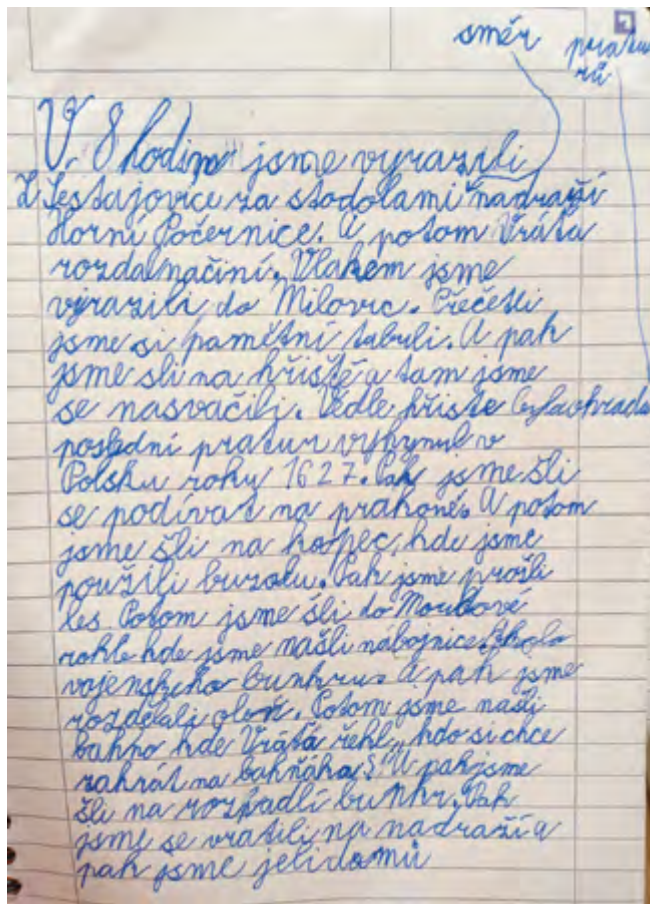 směr pratu
rů
V 8 hodin jsme vyrazili
Z Šestajovice za stodolami nadraží
Horní Počernice. A potom Vráťa
rozdal načiní. Vlakem jsme
vyrazili do Milovic. Přečetli
jsme si pamětní tabuli. A pak
jsme sli na hřiště a tam jsme
se nasvačili. Vedle hřiste byla ohrada
poslední pratur vyhynul v
Polsku roku 1627. Pak jsme šli
se podívat na prakoně. A potom
jsme šli na kopec, kde jsme
použili buzolu. Pak jsme prošli
les. Potom jsme šli do
rokle kde jsme našli nábojnice okolo
vojenskeho bunkru. A pak jsme
rozdělali oheň. Potom jsme našli
bahno kde Vráťa řekl „kdo si chce
zahrát na bahňáka? A pak jsme
šli na rozpadlí bunkr. Pak
jsme se vratili na nadraží a
pak jsme jeli domů